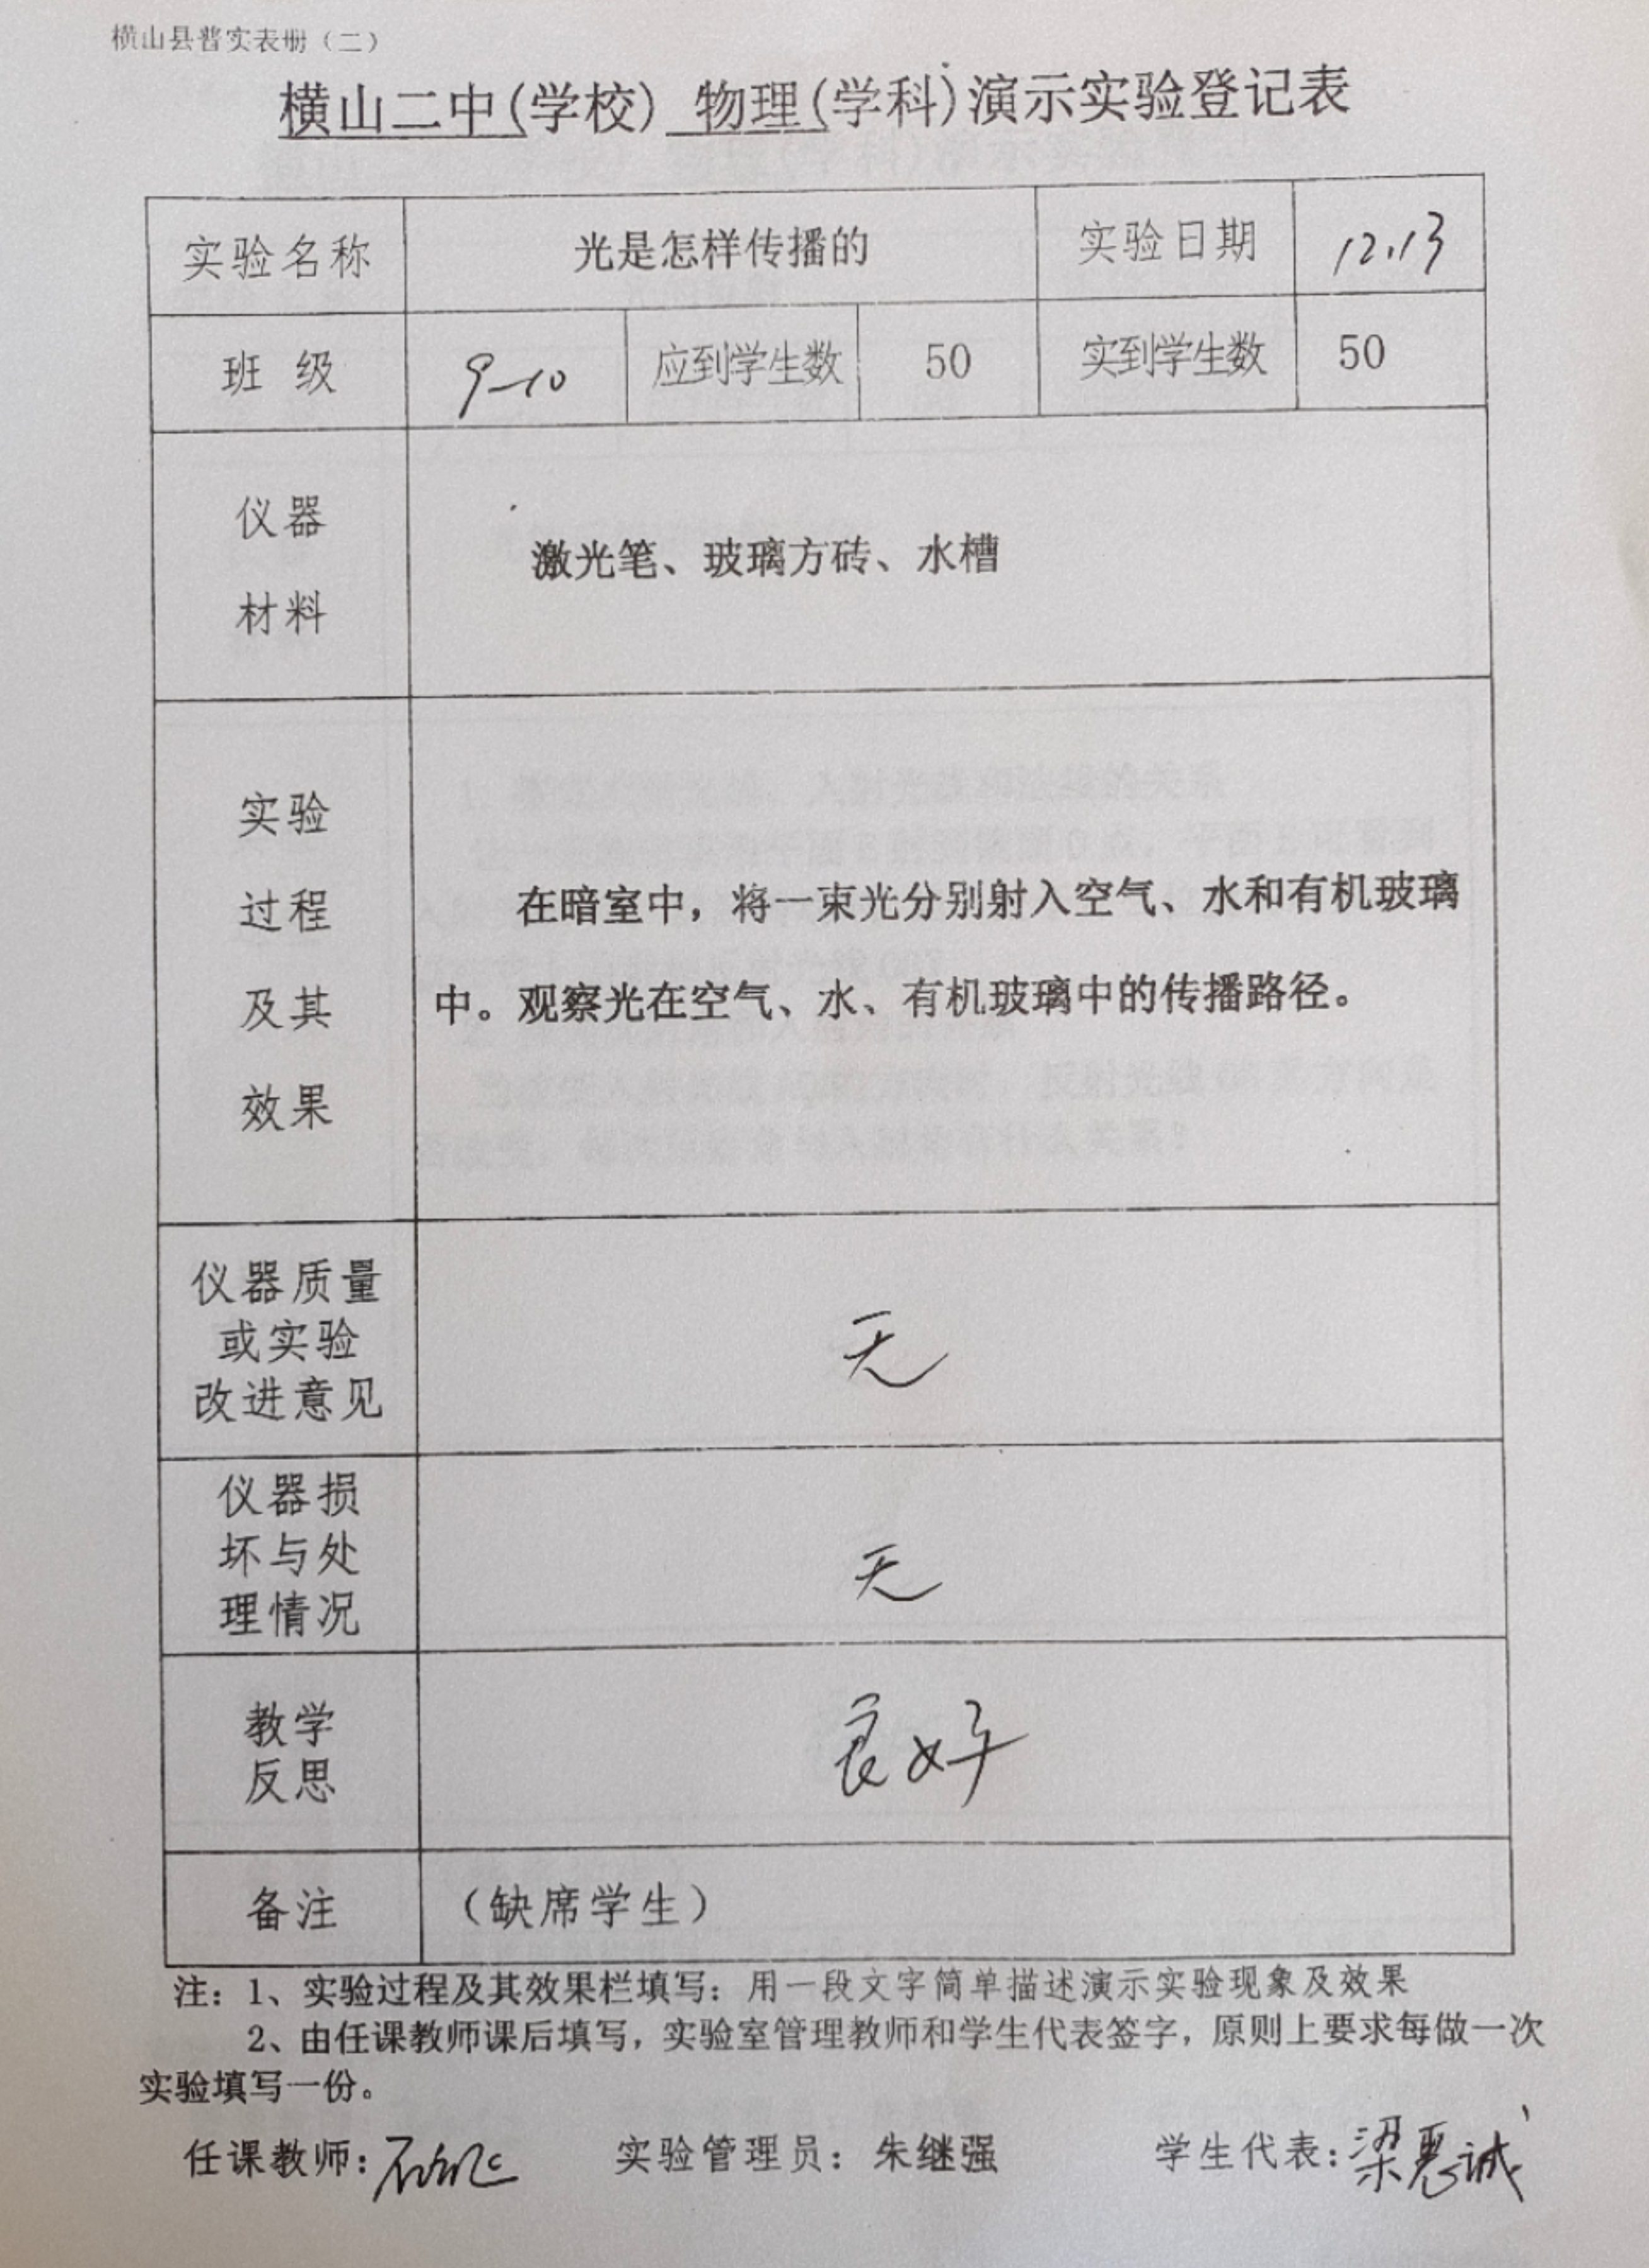 横山县普实表册（二）
横山二中(学校) 物理(学科)演示实验登记表
实验名称 光是怎样传播的 实验日期 12.13
班 级 9-10 应到学生数 50 实到学生数 50
仪器
材料
激光笔、玻璃方砖、水槽
实验
过程
及其
效果
在暗室中，将一束光分别射入空气、水和有机玻璃
中。观察光在空气、水、有机玻璃中的传播路径。
仪器质量
或实验
改进意见
无
仪器损
坏与处
理情况
无
教学
反思
良好
备注 （缺席学生）
注：1、实验过程及其效果栏填写：用一段文字简单描述演示实验现象及效果
2、由任课教师课后填写，实验室管理教师和学生代表签字，原则上要求每做一次
实验填写一份。
任课教师： 实验管理员：朱继强 学生代表：梁恩诚